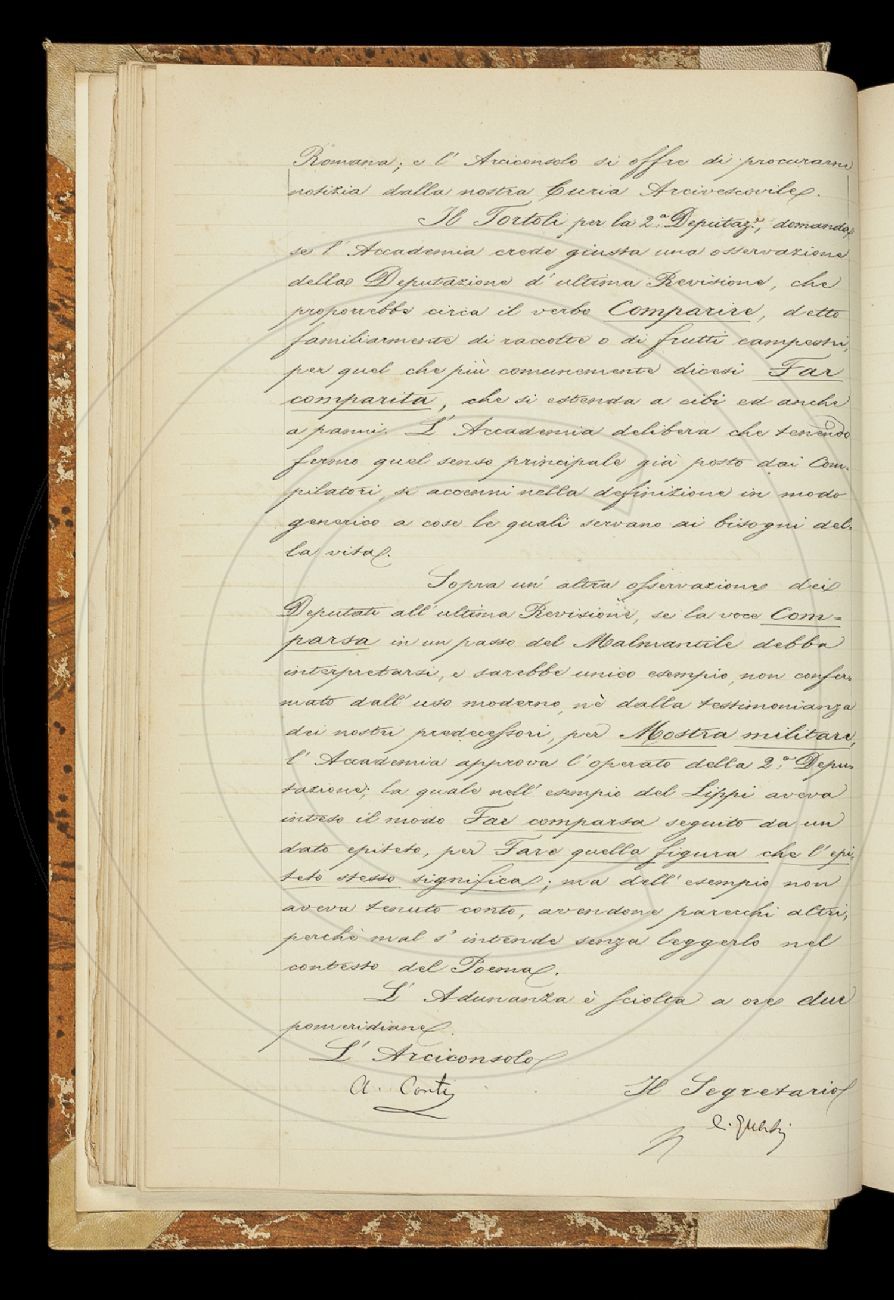 Romana; e l' Arciconsolo si offre di procurarne
notizia dalla nostra Curia Arcivescovile.
Il Tortoli per la 2.ª Deputaz.ᵉ, domanda,
se l' Accademia crede giusta una osservazione
della Deputazione d' ultima Revisione, che
proporrebbe circa il verbo Comparire, detto
familiarmente di raccolte o di frutti campestri,
per quel che più comunemente dicesi Far
comparita, che si estenda a cibi ed anche
a panni. L' Accademia delibera che tenendo
fermo quel senso principale già posto dai Com-
pilatori, si accenni nella definizione in modo
generico a cose le quali servano ai bisogni del-
la vita.
Sopra un' altra osservazione dei
Deputati all' ultima Revisione, se la voce Com=
parsa in un passo del Malmantile debba
interpretarsi, e sarebbe unico esempio, non confer-
mato dall' uso moderno, nè dalla testimonianza
dei nostri predecessori, per Mostra militare,
l' Accademia approva l' operato della 2.ª Depu-
tazione; la quale nell' esempio del Lippi aveva
inteso il modo Far comparsa seguito da un
dato epiteto, per Fare quella figura che l' epi-
teto stesso significa; ma dell' esempio non
aveva tenuto conto, avendone parecchi altri,
perchè mal s' intende senza leggerlo nel
contesto del Poema.
L' Adunanza è sciolta a ore due
pomeridiane.
L' Arciconsolo
A. Conti
Il Segretario